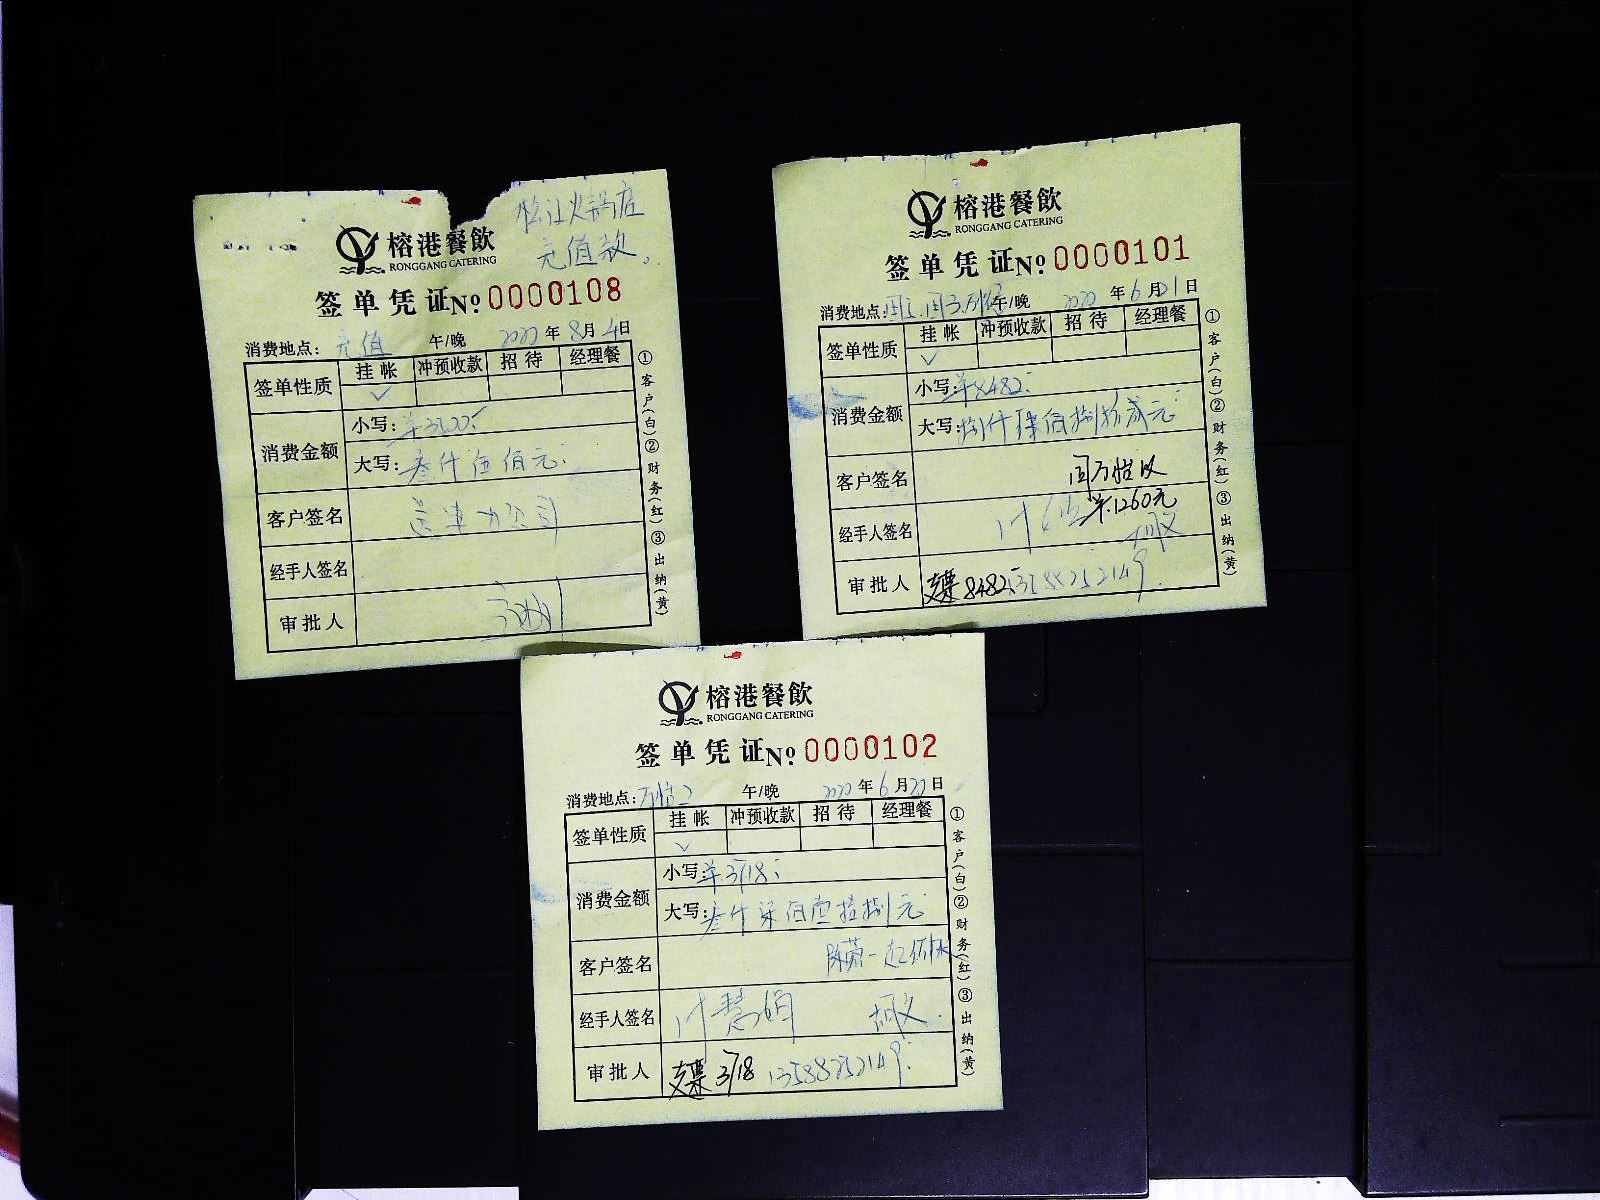 火锅店
充值款。
榕港餐飲
RONGGANG CATERING
签单凭证№0000108
消费地点：充值 午/晚 2022年8月4日
签单性质 挂帐 冲预收款 招待 经理餐
✓
消费金额 小写：
大写：叁仟伍佰元
客户签名
经手人签名
审批人
①客户(白)②财务(红)③出纳(黄)
榕港餐飲
RONGGANG CATERING
签单凭证№0000101
消费地点： 午/晚 2022年6月21日
签单性质 挂帐 冲预收款 招待 经理餐
✓
消费金额 小写：¥8482
大写：捌仟肆佰捌拾贰元
客户签名
¥1260元
经手人签名
审批人 支票8482 13588252149
①客户(白)②财务(红)③出纳(黄)
榕港餐飲
RONGGANG CATERING
签单凭证№0000102
消费地点： 午/晚 2022年6月22日
签单性质 挂帐 冲预收款 招待 经理餐
✓
消费金额 小写：¥3718
大写：叁仟柒佰壹拾捌元
客户签名
经手人签名 叶慧娟
审批人 支票3718 13588252149
①客户(白)②财务(红)③出纳(黄)